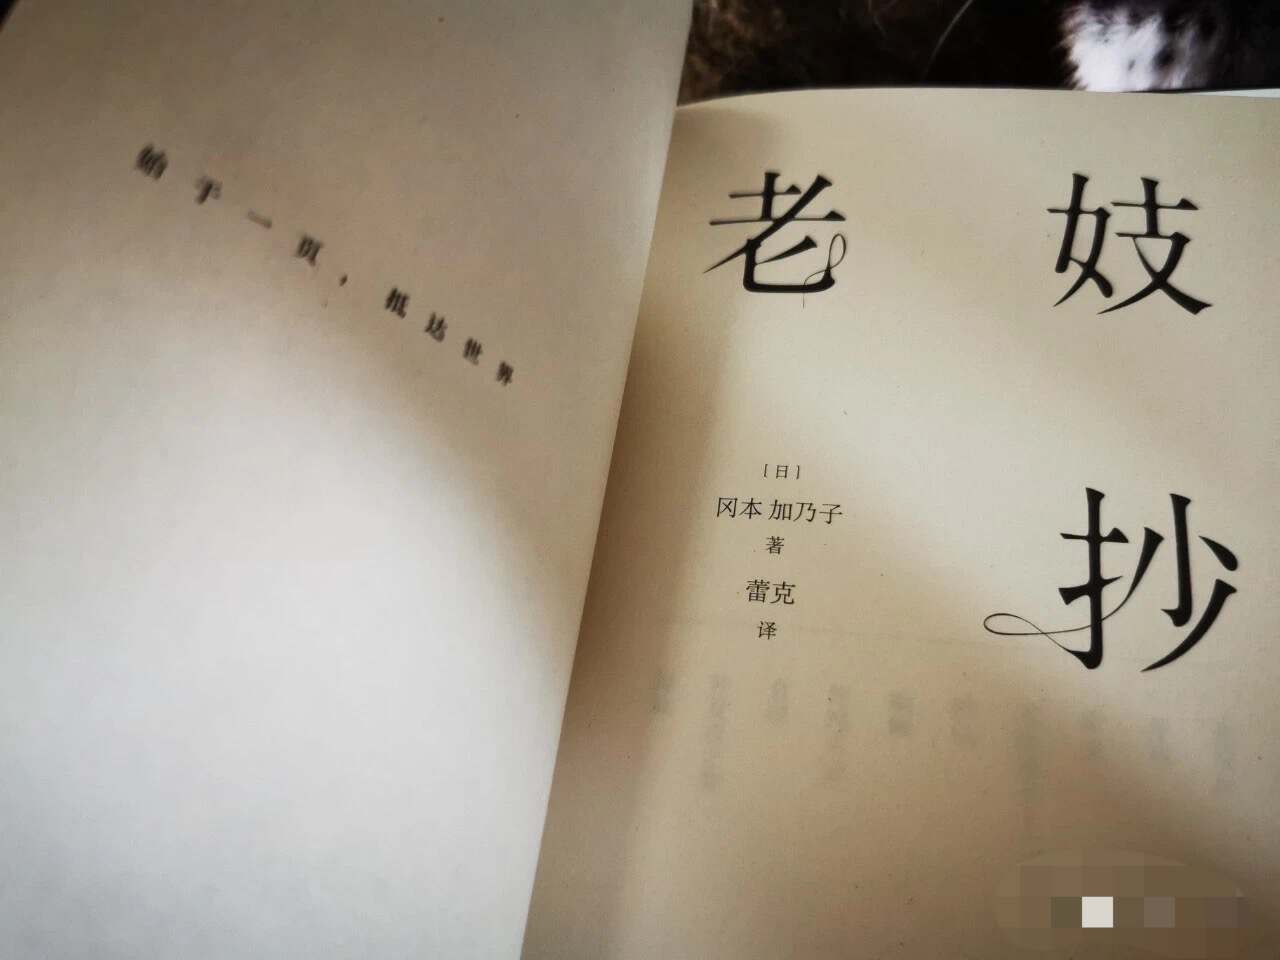 始于一页，抵达世界
老妓
抄
[日]
冈本 加乃子
著
蕾克
译